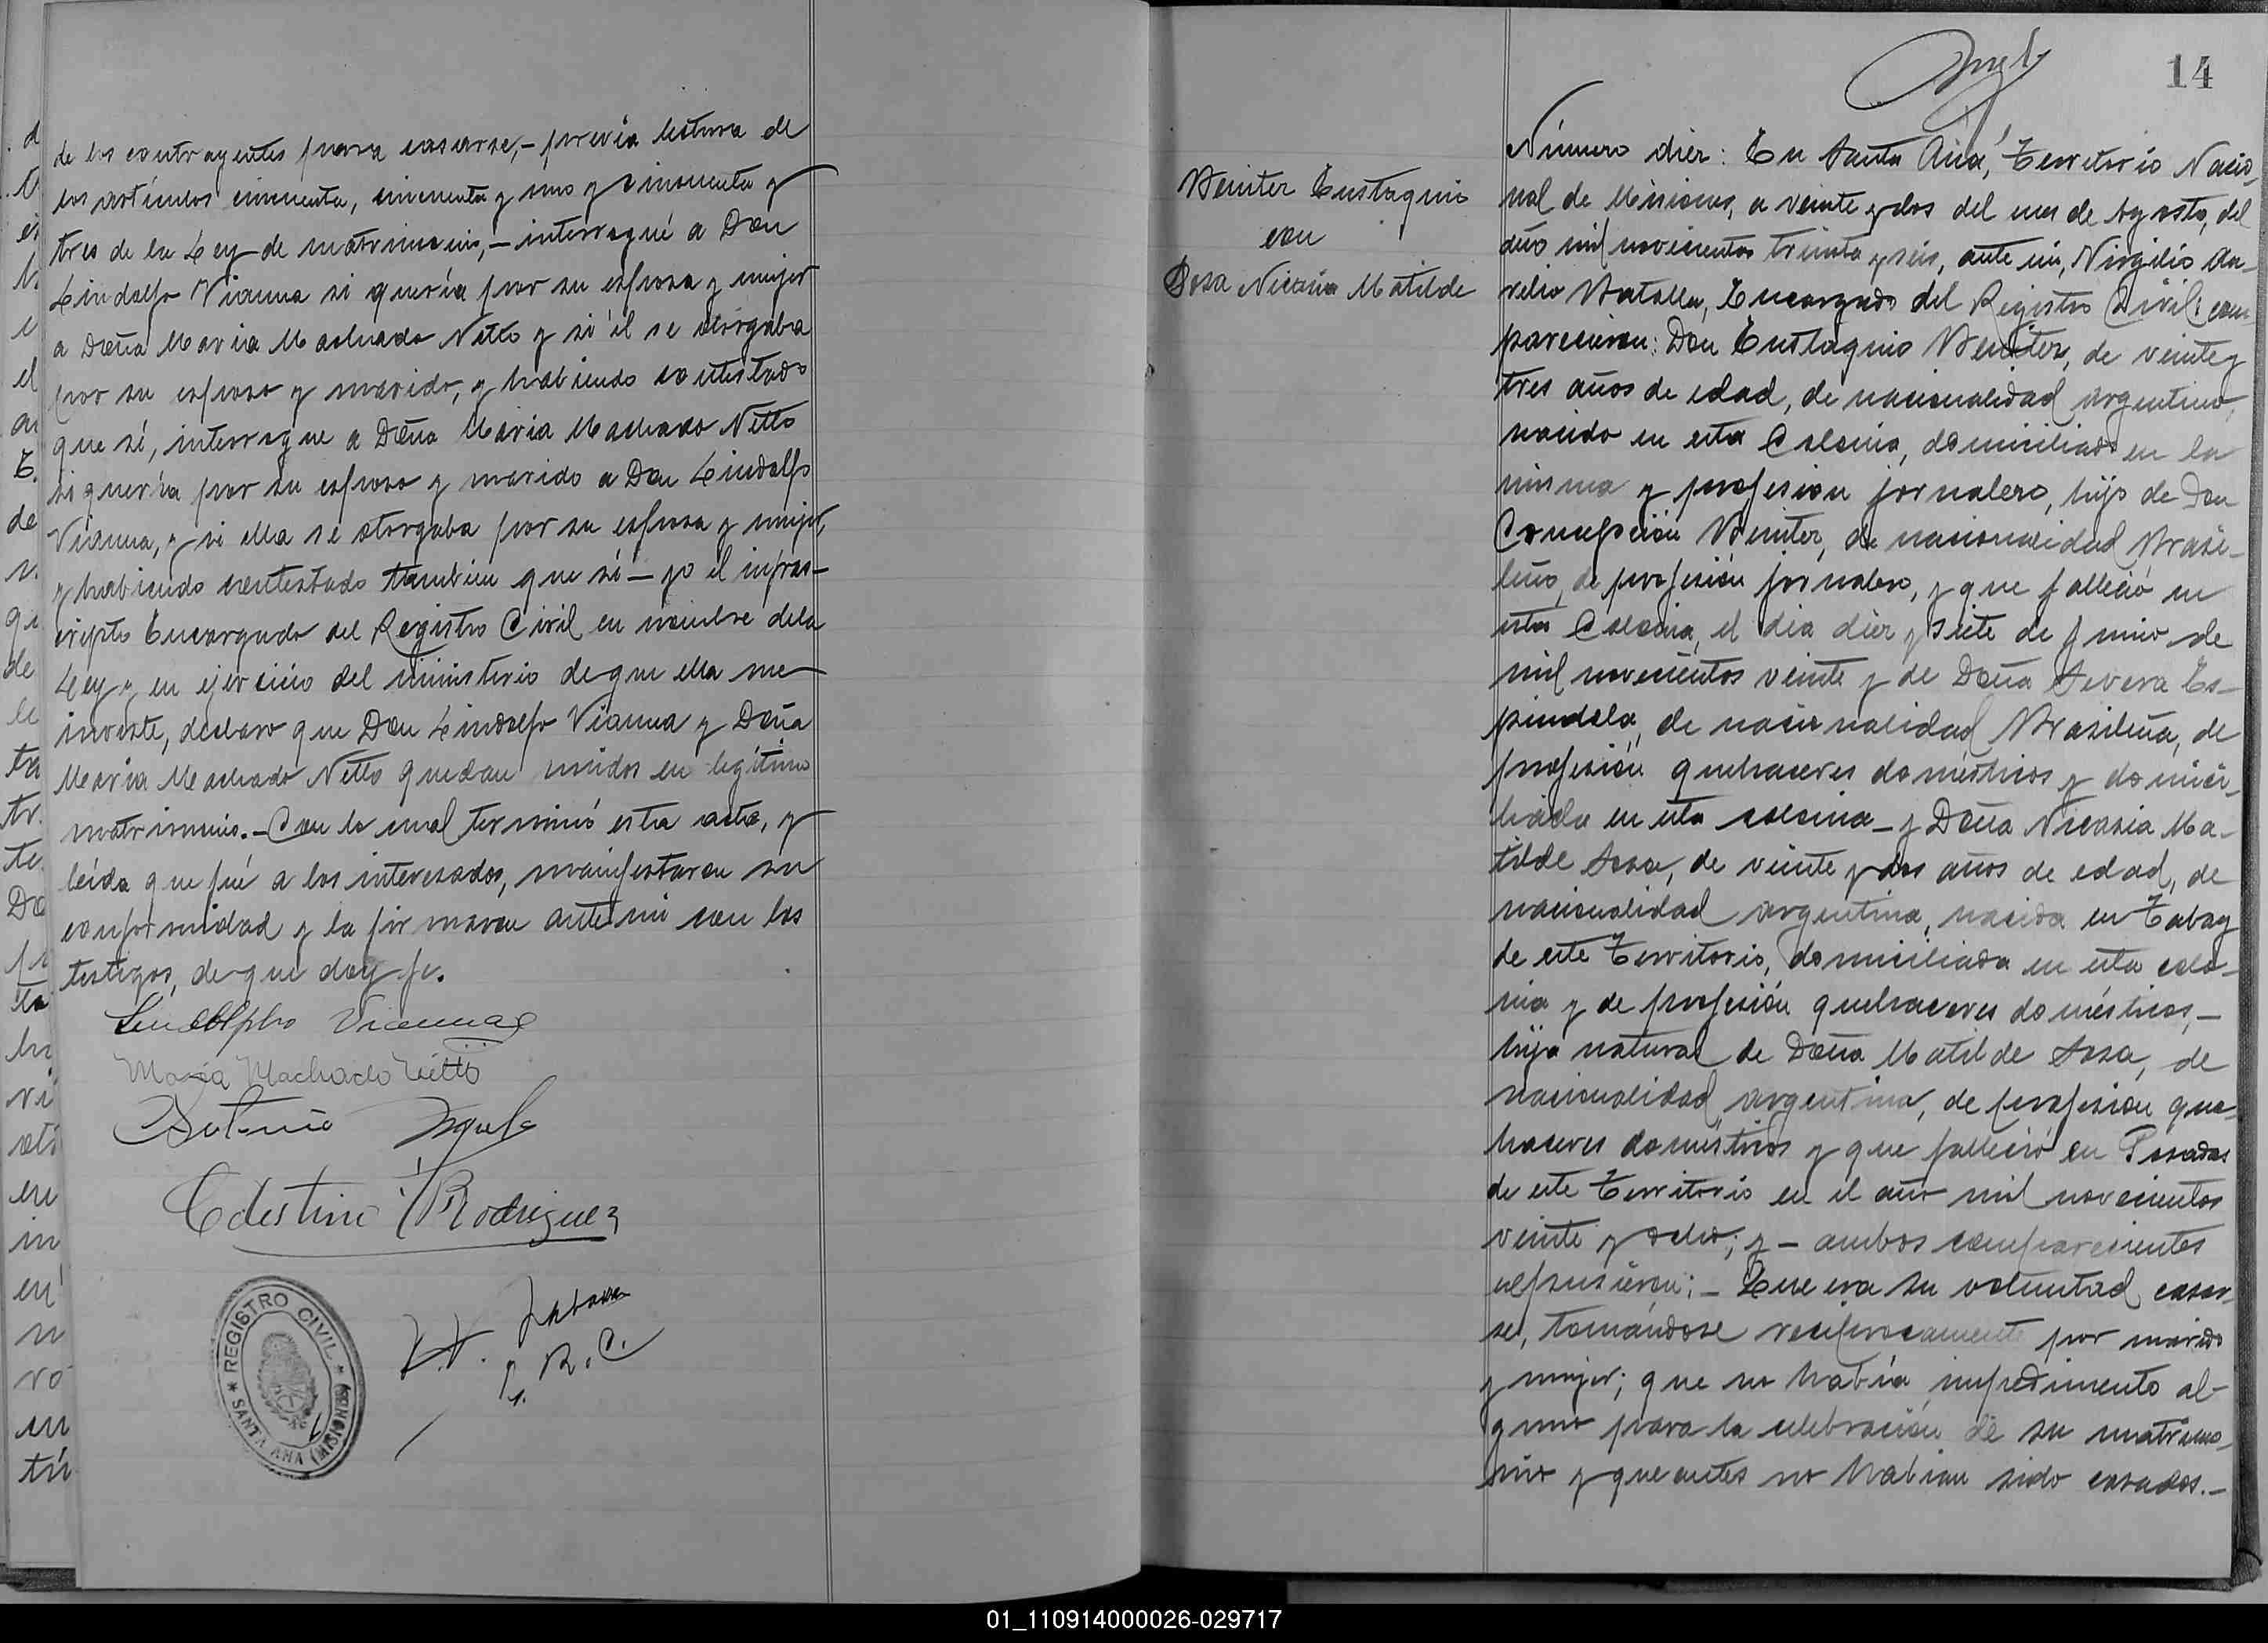 de los contrayentes para casarse,- previa lectura de
los artículos cincuenta, cincuenta y uno y cincuenta y
tres de la Ley de matrimonio,- interrogué a Don
Lindolfo Vianna si quería por su esposa y mujer
a Doña Maria Machado Netto y si él se otorgaba
por su esposo y marido, y habiendo contestado
que sí, interrogue a Doña Maria Machado Netto
si quería por su esposo y marido a Don Lindolfo
Vianna, y si ella se otorgaba por su esposa y mujer,
y habiendo contestado tambien que sí - yo el infras-
cripto Encargado del Registro Civil en nombre dela
Ley y en ejercicio del ministerio de que ella me
inviste, declaro que Don Lindolfo Vianna y Doña
Maria Machado Netto quedan unidos en legítimo
matrimonio.- Con lo cual terminó esta acta, y
leída que fué a los interesados, manifestaron su
conformidad y la firmaron ante mi con los
testigos, de que doy fe.
Lindolpho Vianna
Maria Machado Netto
Antonio
Celestino Rodriguez
E. R. C.
* REGISTRO CIVIL * SANTA ANA (MISIONES)
14
Beniter Eustaquio
con
Sosa Nicasia Matilde
Número diez: En Santa Ana, Territorio Nacio-
nal de Misiones, a veinte y dos del mes de Agosto, del
año mil novecientos treinta y seis, ante mi, Virgilio Au-
relio Batalla, Encargado del Registro Civil: com-
parecieron: Don Eustaquio Beniter, de veinte y
tres años de edad, de nacionalidad argentino,
nacido en esta Colonia, domiciliado en la
misma y profesion jornalero, hijo de Don
Concepción Beniter, de nacionalidad Brasi-
leño, de profesión jornalero, y que falleció en
esta Colonia, el dia diez y siete de Junio de
mil novecientos veinte y de Doña Severa Es-
pindola, de nacionalidad Brasileña, de
profesión quehaceres domésticos y domici-
liada en esta colonia - y Doña Nicasia Ma-
tilde Sosa, de veinte y dos años de edad, de
nacionalidad argentina, nacida en Tabay
de este Territorio, domiciliada en esta colo-
nia y de profesión quehaceres domésticos,-
hija natural de Doña Matilde Sosa, de
nacionalidad argentina, de profesión que-
haceres domésticos y que falleció en Posadas
de este Territorio en el año mil novecientos
veinte y ocho; y - ambos comparecientes
expusieron: - Que era su voluntad casar-
se, tomándose reciprocamente por marido
y mujer; que no había impedimento al-
guno para la celebración de su matrimo-
nio y que antes no habian sido casados.-
01_110914000026-029717